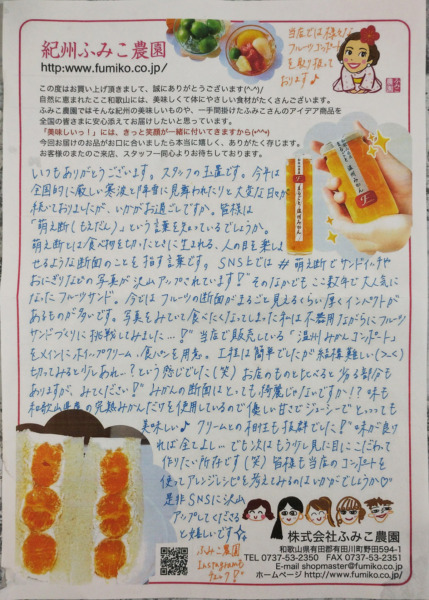 紀州ふみこ農園
http://www.fumiko.co.jp/
当店では様々な
フルーツコンポートを
取り扱って
おります♪
この度はお買い上げ頂きまして、誠にありがとうございます(^-^)/
自然に恵まれたここ和歌山には、美味しくて体にやさしい食材がたくさんございます。
ふみこ農園ではそんな紀州の美味しいものや、一手間掛けたふみこさんのアイデア商品を
全国の皆さまに安心添えてお届けしたいと思っています。
「美味しいっ！」には、きっと笑顔が一緒に付いてきますから(*^^*)
今回お届けのお品がお口に合いましたら本当に嬉しく、ありがたく存じます。
お客様のまたのご来店、スタッフ一同心よりお待ちしております。
いつもありがとうございます。スタッフの玉置です。今年は
全国的に厳しい寒波と降雪に見舞われたりと大変な日々が
続いておりましたが、いかがお過ごしですか。皆様は
「萌え断(もえだん)」という言葉を知っているでしょうか。
萌え断とは食べ物を切ったときに生まれる、人の目を楽しま
せるような断面のことを指す言葉です。SNS上では#萌え断でサンドイッチや
おにぎりなどの写真が沢山アップされています!! そのなかでもここ数年で大人気に
なったフルーツサンド。今ではフルーツの断面がまるごと見えるくらい厚くインパクトが
あるものが多いです。写真をみていて食べたくなってしまった私は不器用ながらにフルーツ
サンドづくりに挑戦してみました…!!" 当店で販売している「温州みかんコンポート」
をメインにホイップクリーム・食パンを用意。工程は簡単でしたが結構難しい(>_<)
切ってみると少しあれ…?という感じでした(笑) お店のものと比べると劣る部分も
ありますが、みてください!!" みかんの断面はとっても綺麗じゃないですか!? 味も
和歌山県産の完熟みかんだけを使用しているので優しい甘さでジューシーでとっっっても
美味しい♪ クリームとの相性も抜群でした!! "味が良け
れば全てよし"… でも次はもう少し見た目にこだわって
作りたい所存です(笑) 皆様も当店のコンポートを
使ってアレンジレシピを考えてみるのはいかがでしょうか♡
是非SNSに沢山
アップしてくださる
と嬉しいです
ふみこ農園
Instagramも
チェック!!
まるごと温州みかん
株式会社ふみこ農園
和歌山県有田郡有田川町野田594-1
TEL 0737-53-2350　FAX 0737-53-2351
E-mail shopmaster@fumiko.co.jp
ホームページ http://www.fumiko.co.jp/